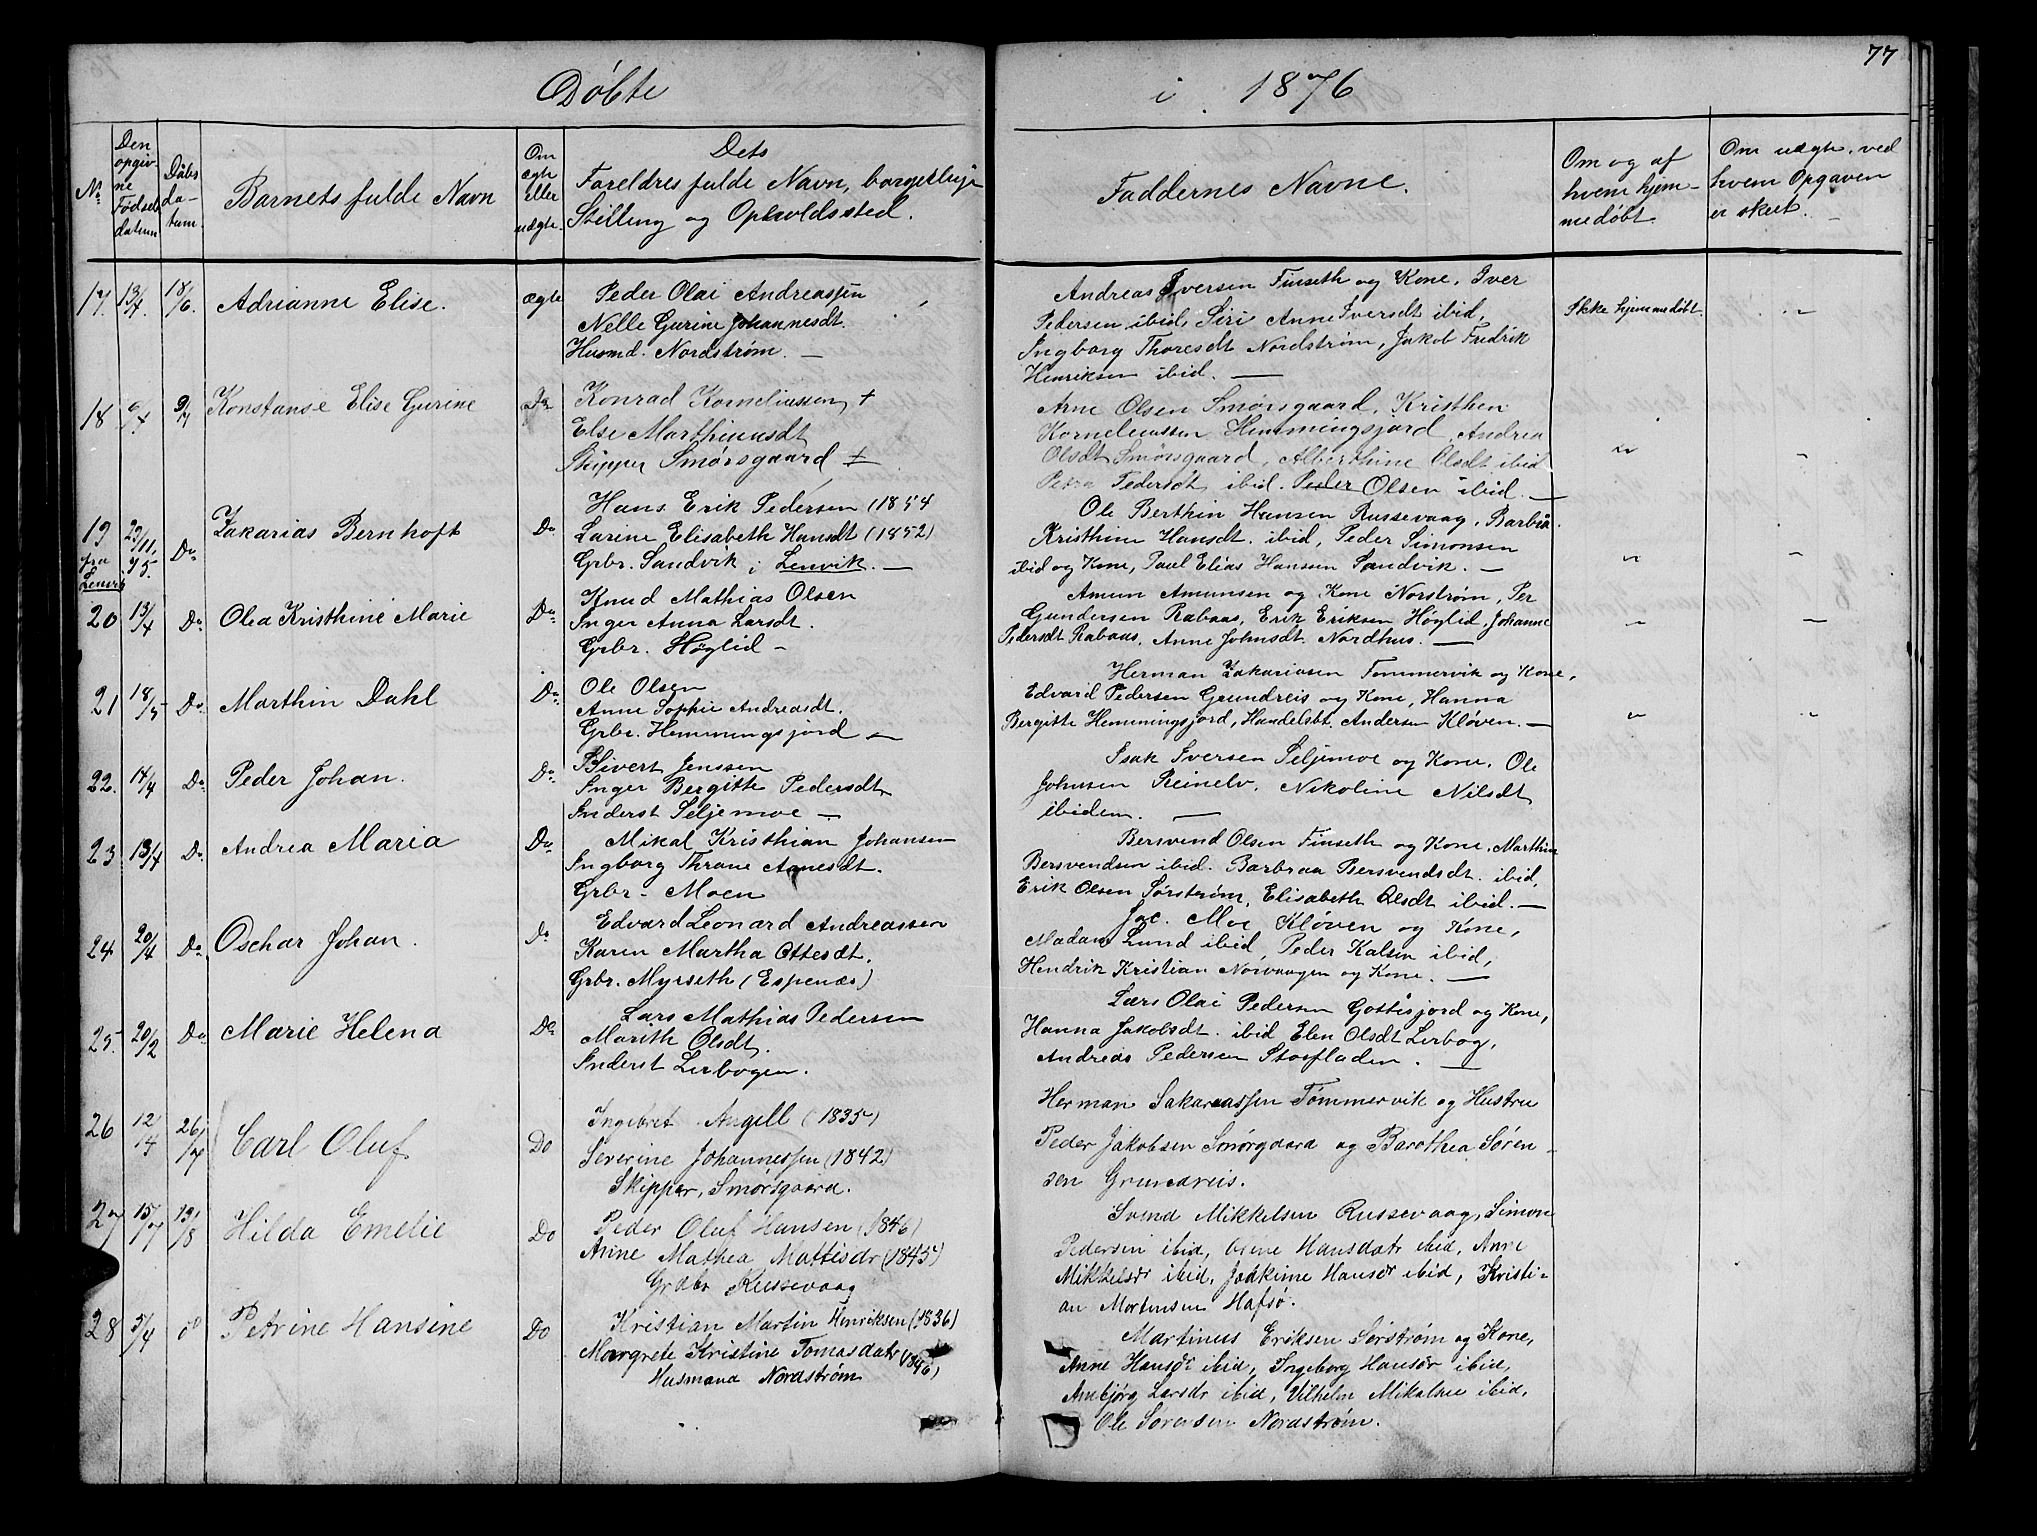 77
Døbte i 1876
No
Den opgivne Fødselsdatum
Dåbsdatum.
Barnets fulde Navn
Om ægte eller uægte.
Dets Foreldres fulde Navn, borgerlige Stilling og Opholdssted.
Faddernes Navne.
Om og af hvem hjemmedøbt.
Om uægte, ved hvem Opgaven er skeet.
17. 13/4. 18/6. Adrianne Elise. ægte
Peder Olai Andreassen
Nelle Gurine Johannesdt.
Husmd. Nordstrøm. —
Andreas Iversen Finseth og Kone, Iver
Pedersen ibid, Siri Anne Iversdt ibid,
Ingborg Thoresdt Nordstrøm, Jakob Fredrik
Henriksen ibid. —
Ikke hjemmedøbt.
18 6/4. 9/7 Konstanse Elise Gurine Do
Konrad Korneliussen +
Else Marthinusdt
Skipper Smørsgaard +
Arne Olsen Smørsgaard, Kristhen
Korneliussen Hemmingsjord, Andrea
Olsdt Smørsgaard, Alberthine Olsdt ibid
Petra Pedersdt ibid. Peder Olsen ibid. —
19 fra Lenvig 29/11. 75. Do Zakarias Bernhoft Do
Hans Erik Pedersen (1854
Larine Elisabeth Hansdt (1852)
Grbr. Sandvik i Lenvik. —
Ole Berthin Hansen Russevaag, Barbra
Kristhine Hansdt. ibid, Peder Simonsen
ibid og Kone, Paul Elias Hansen Sandvik. —
20 13/4 Do Olea Kristhine Marie Do
Knud Mathias Olsen
Inger Anna Larsdt.
Grbr. Høglid —
Amun Amunsen og Kone Norstrøm, Per
Gundersen Rabaas, Erik Eriksen Høglid, Johanne
Pedersdt Rabaas, Anne Johnsdt Nordhus. —
21 18/5 Do Marthin Dahl Do
Ole Olsen
Anne Sophie Andreasdt.
Grbr. Hemmingsjord —
Herman Zakariasen Tommervik og Kone,
Edvard Pedersen Grundreis og Kone, Hanna
Bergitte Hemmingsjord, Handelsbt. Andersen Kløven. —
22. 14/4 Do Peder Johan. Do
Sivert Jenssen
Inger Bergitte Pedersdt
Inderst Seljemoe —
Isak Iversen Seljemoe og Kone, Ole
Johnsen Reinelv, Nikoline Nilsdt
ibidem. —
23 13/4 Do Andrea Maria Do
Mikal Kristhian Johansen
Ingborg Thrane Agnesdt.
Grbr. Moen
Bersvend Olsen Finseth og Kone, Marthin
Bersvendsen ibid. Barbraa Bersvendsdt. ibid,
Erik Olsen Sørstrøm, Elisabeth Olsdt ibid. —
24 20/4 Do Oschar Johan. Do
Edvard Leonard Andreassen
Karen Martha Ottesdt.
Grbr. Myrseth (Espenæs)
Jac. Moe Kløven og Kone,
Madam Lund ibid, Peder Kalsen ibid,
Hendrik Kristian Norvaagen og Kone. —
25. 20/2 Do Marie Helena Do
Lars Mathias Pedersen
Marith Olsdt.
Inderst Lerbogen.
Lars Olai Pedersen Gottesjord og Kone,
Hanna Jakobsdt. ibid Elen Olsdt Lerbog,
Andreas Pedersen Storfladen. —
26 12/4 26/7 Carl Oluf Do
Ingebret Angell (1835)
Severine Johannessen (1842)
Skipper, Smørsgaard.
Herman Sakariassen Tømmervik og Hustru
Peder Jakobsen Smørgaard og Barothea Søren-
sen Grundreis.
27 15/7 13/8 Hilda Emelie Do
Peder Oluf Hansen (1846)
Anne Mathea Mattisdr (1845)
Grdbr Russevaag
Svend Mikkelsen Russevaag, Simon
Pedersen ibid, Hansdatr ibid, Anne
Mikkelsdr ibid, Joakime Hansdr ibid, Kristi-
an Mortensen Hafsø.
28 5/4 do Petrine Hansine Do
Kristian Martin Henriksen (1836)
Margrete Kristine Tomasdatr (1846)
Husmand Nordstrøm
Martinus Eriksen Sørstrøm og Kone,
Anne Hansdr ibid, Ingeborg Hansdr ibid,
Annbjørg Larsdr ibid, Vilhelm Mikalsen ibid,
Ole Sørensen Nordstrøm.